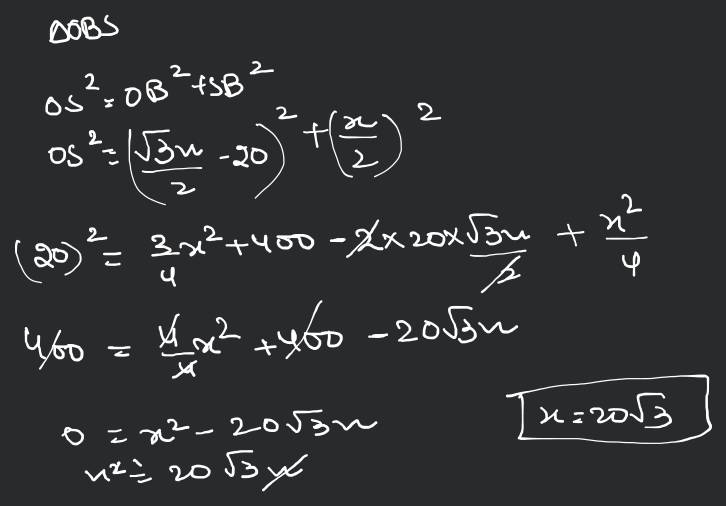 △OBS
OS² = OB² + SB²
OS² = (√3x/2 - 20)² + (x/2)²
(20)² = 3/4 x² + 400 - 2 × 20 × √3x/2 + x²/4
400 = 4/4 x² + 400 - 20√3x
0 = x² - 20√3x
x² = 20√3x
x = 20√3